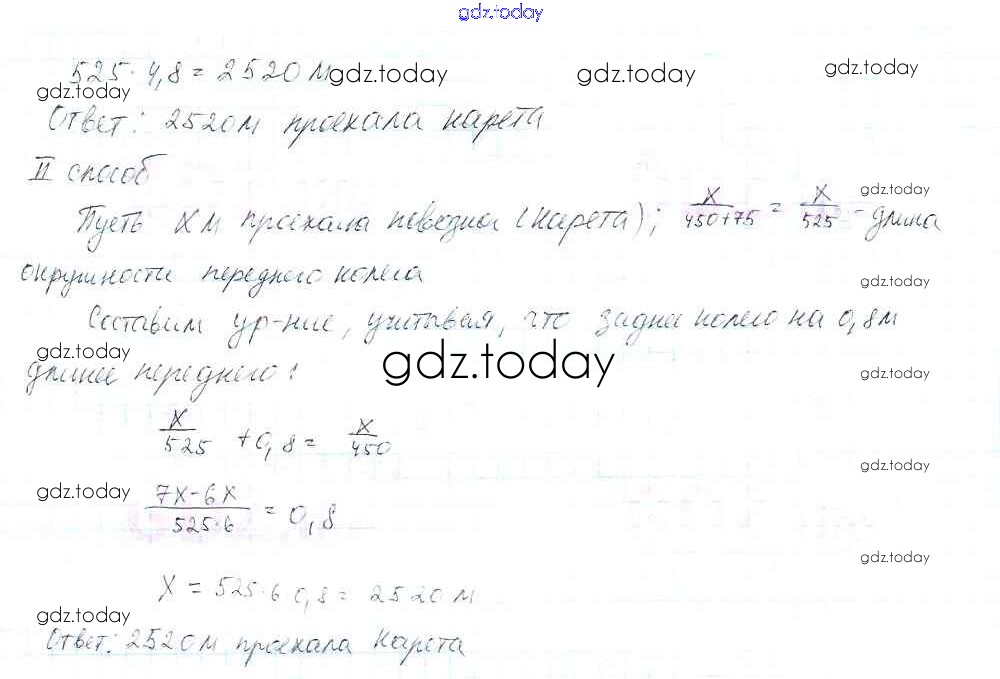 gdz.today
525 · 4,8 = 2520 м gdz.today gdz.today gdz.today
gdz.today
Ответ: 2520 м проехала карета
II способ
gdz.today
Пусть X м проехала повозка (карета); X/450+75 = X/525 - длина
окружности переднего колеса
gdz.today
Составим ур-ние, учитывая, что заднее колесо на 0,8 м
gdz.today
длинее переднего: gdz.today gdz.today
X/525 + 0,8 = X/450
gdz.today
gdz.today
7X-6X/525·6 = 0,8
gdz.today
X = 525·6 0,8 = 2520 м
gdz.today
Ответ: 2520 м проехала карета